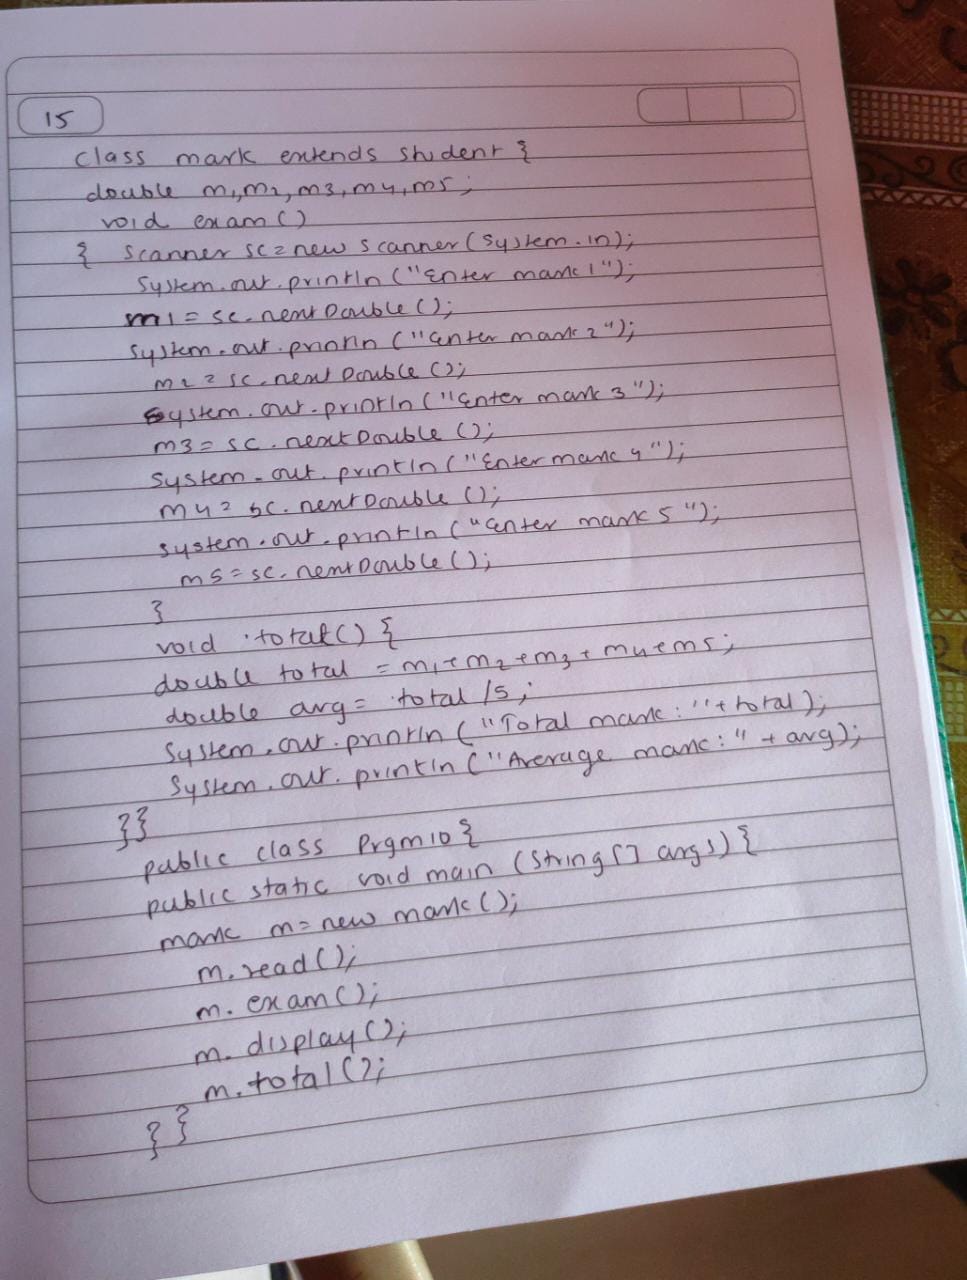 15
class mark extends student {
double m1, m2, m3, m4, m5;
void exam ()
{ Scanner sc = new Scanner (System.in);
System.out.println ("Enter mark 1");
m1 = sc.nextDouble ();
System.out.println ("Enter mark 2");
m2 = sc.nextDouble ();
System.out.println ("Enter mark 3");
m3 = sc.nextDouble ();
System.out.println ("Enter mark 4");
m4 = sc.nextDouble ();
System.out.println ("Enter mark 5");
m5 = sc.nextDouble ();
}
void total() {
double total = m1+m2+m3+m4+m5;
double avg = total /5;
System.out.println ("Total mark: "+total);
System.out.println ("Average mark: " + avg);
}}
public class Prgm10 {
public static void main (String [] args) {
mark m = new mark ();
m.read ();
m.exam ();
m.display ();
m.total ();
} }